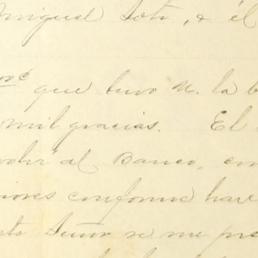 Miguel Soto, & él
que tuvo U. la b
mil gracias. El
al Banco, em
iones conforme har
Señor se me pre